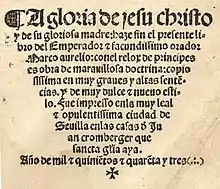 A gloria de jesu christo
y de su gloriosa madre: haze fin el presente li
bro del Emperador ⁊ facundissimo orador
Marco aurelio: con el relox de principes
es obra de marauillosa doctrina: copio
sissima en muy graues y altas senten
cias, y de muy dulce ⁊ nueuo esti
lo. Fue impresso en la muy leal
⁊ opulentissima ciudad de
Seuilla en las casas đ Ju
an cromberger que
sancta glia aya.
Año de mil ⁊ quiniẽtos ⁊ quarẽta y tres (:.)
✠